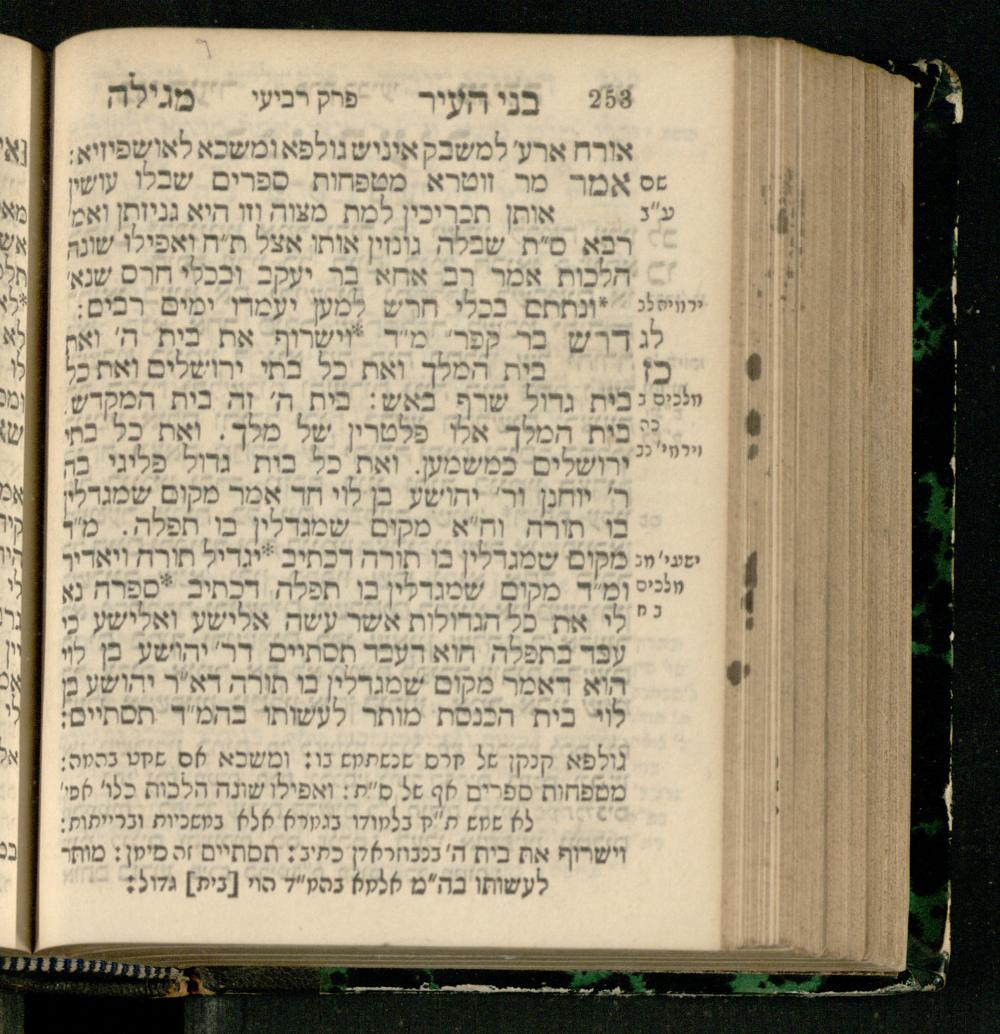 253 בני העיר פרק רביעי מגילה
אורח ארע׳ למשבק איניש גולפא ומשכא לאושפיזיא:
שם אמר מר זוטרא מטפחות ספרים שבלו עושין
ע״ב אותן תכריכין למת מצוה וזו היא גניזתן ואמ׳
רבא ס״ת שבלה גונזין אותו אצל ת״ח ואפילו שונה
הלכות אמר רב אחא בר יעקב ובכלי חרס שנא׳
ירמיה לב *ונתתם בכלי חרש למען יעמדו ימים רבים:
לג דרש בר קפר׳ מ״ד *וישרוף את בית ה׳ ואת
כז בית המלך ואת כל בתי ירושלים ואת כל
מלכים ב בית גדול שרף באש: בית ה׳ זה בית המקדש.
כה בית המלך אלו פלטרין של מלך. ואת כל בתי
וירמי׳ נב ירושלים כמשמען. ואת כל בית גדול פליגי בה
ר׳ יוחנן ור׳ יהושע בן לוי חד אמר מקום שמגדלין
בו תורה וח״א מקום שמגדלין בו תפלה. מ״ד
ישעי׳ מב מקום שמגדלין בו תורה דכתיב *יגדיל תורה ויאדיר
מלכים ומ״ד מקום שמגדלין בו תפלה דכתיב *ספרה נא
ב ח לי את כל הגדולות אשר עשה אלישע ואלישע כי
עבד בתפלה הוא דעבד תסתיים דר׳ יהושע בן לוי
הוא דאמר מקום שמגדלין בו תורה דא״ר יהושע בן
לוי בית הכנסת מותר לעשותו בהמ״ד תסתיים:
גולפא קנקן של חרס שנשתמש בו: ומשכא אס שקט בהמה:
מטפחות ספרים אף של ס״ת: ואפילו שונה הלכות כלו׳ אפי׳
לא שמש ת״ח בלמודו בגמרא אלא במשניות וברייתות:
וישרוף את בית ה׳ בנבוזראדן כתיב: תסתיים זה סימן: מותר
לעשותו בה״מ אלמא בהמ״ד הוי [בית] גדול: